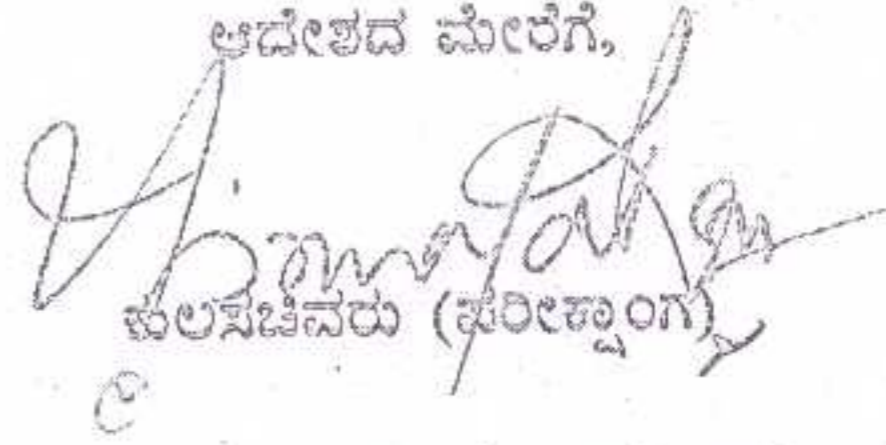 ಆದೇಶದ ಮೇರೆಗೆ,
ಕುಲಸಚಿವರು (ಪರೀಕ್ಷಾಂಗ)